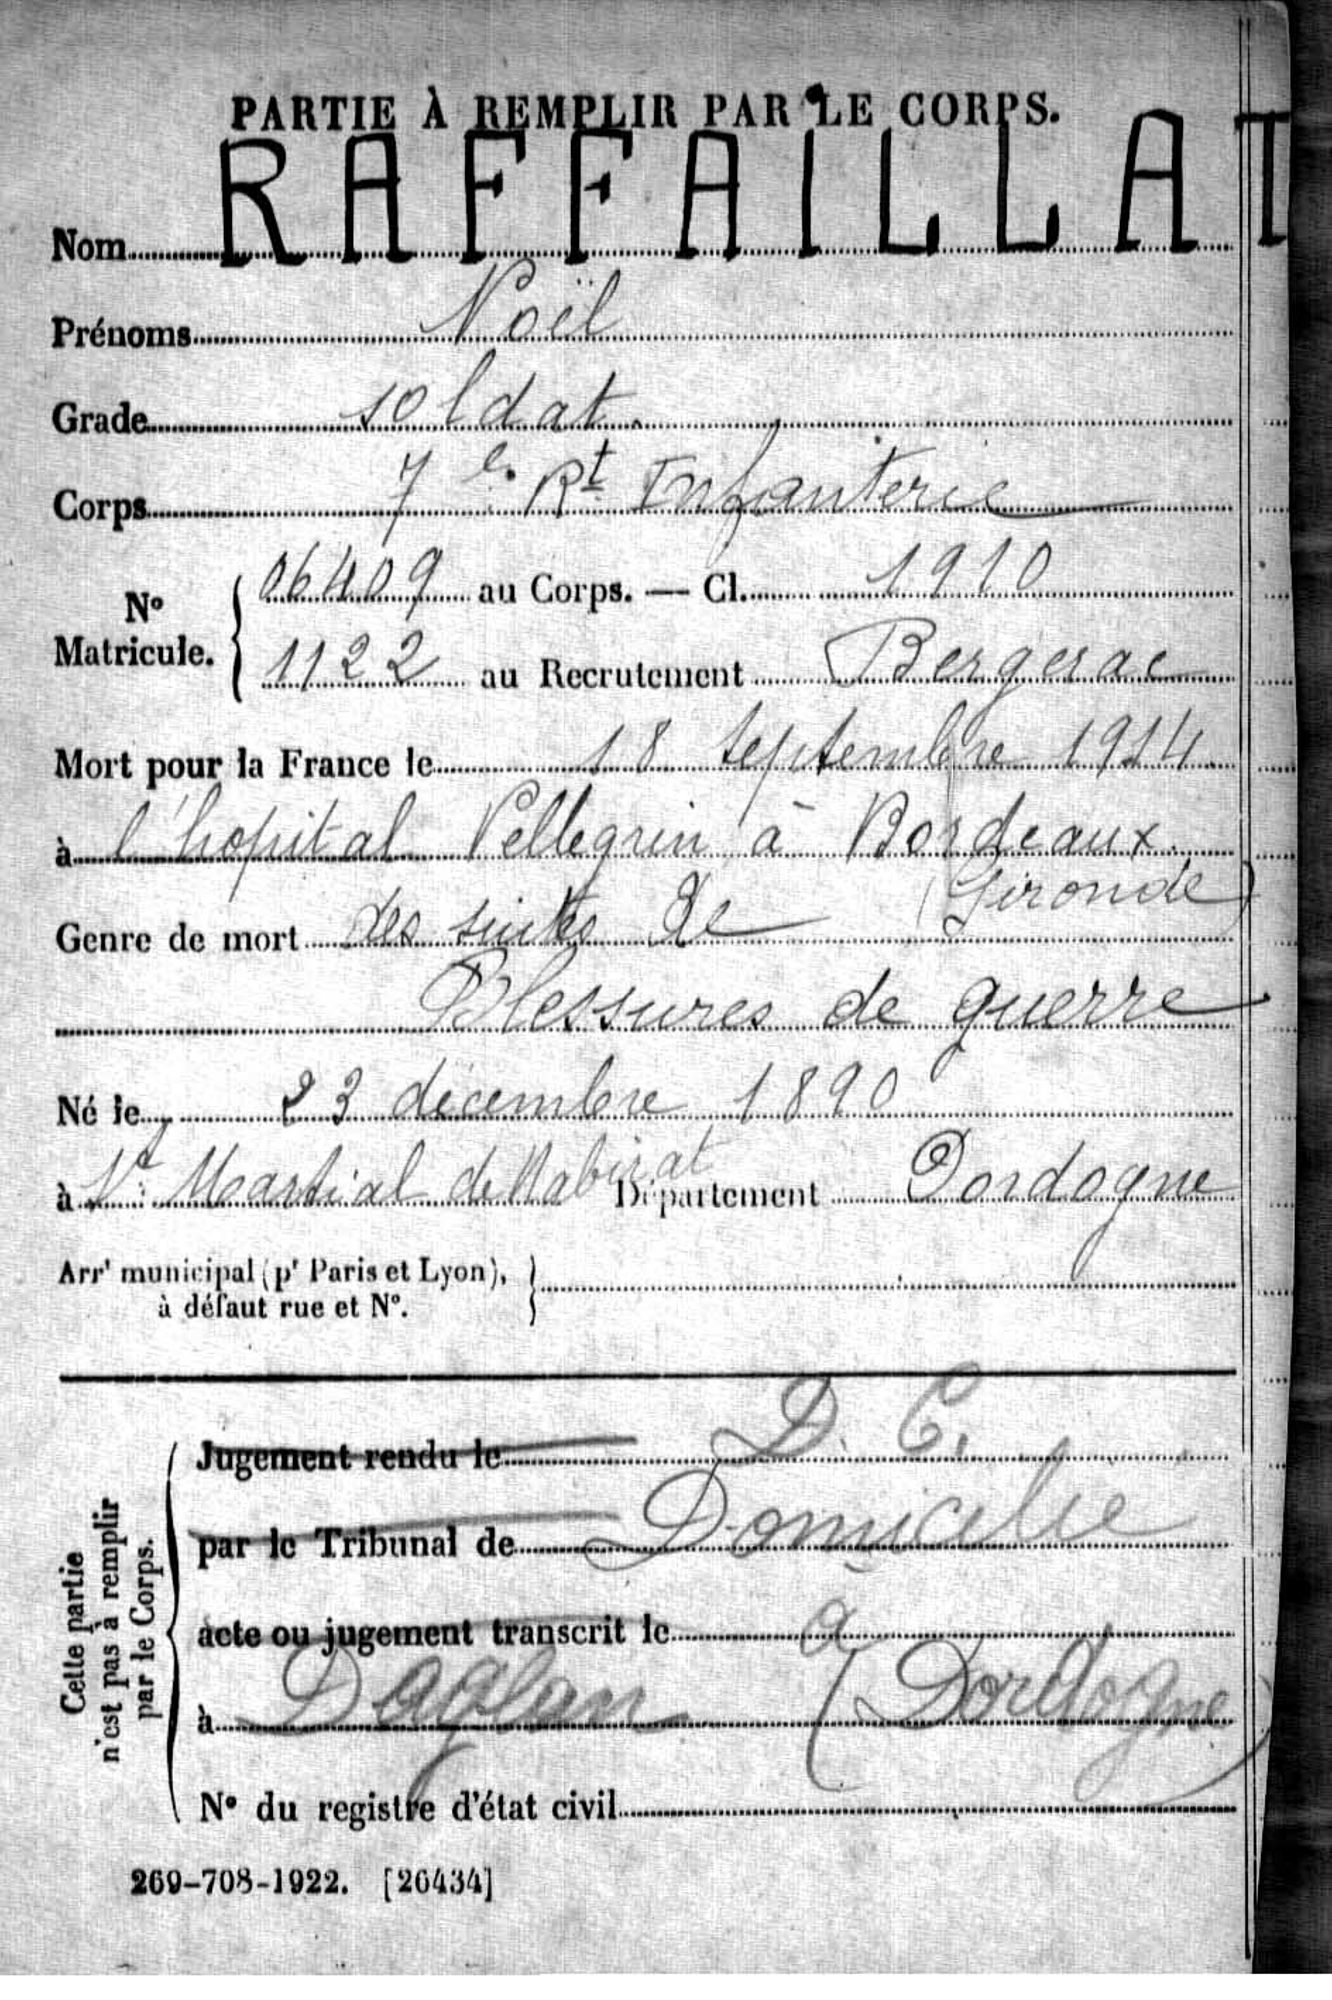 PARTIE À REMPLIR PAR LE CORPS.
Nom RAFFAILLAT
Prénoms Noël
Grade soldat.
Corps 7e. Rt Infanterie
No Matricule. { 06409 au Corps. — Cl. 1910
1122 au Recrutement Bergerac
Mort pour la France le 18 septembre 1914
à l'hopital Pellegrin à Bordeaux.
(Gironde)
Genre de mort des suites de
Blessures de guerre
Né le 23 décembre 1890
à St Martial de Nabirat Département Dordogne
Arrt municipal (pr Paris et Lyon), }
à défaut rue et No.
Cette partie
n'est pas à remplir
par le Corps.
Jugement rendu le D. C.
par le Tribunal de Domicilie
acte ou jugement transcrit le a
à Daglan (Dordogne)
No du registre d'état civil
269-708-1922. [26434]